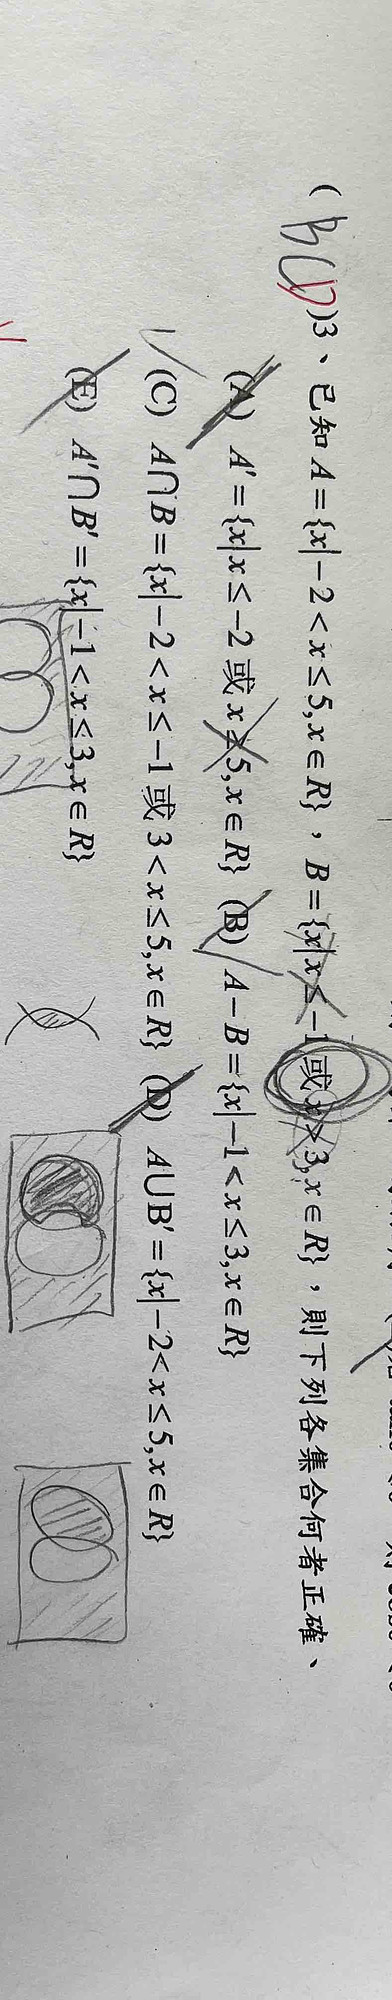 ( B C D )3、已知 A={x|−2<x≤5,x∈R}，B={x|x≤−1或x>3,x∈R}，則下列各集合何者正確、
(A) A′={x|x≤−2 或 x≥5,x∈R} (B) A−B={x|−1<x≤3,x∈R}
(C) A∩B={x|−2<x≤−1 或 3<x≤5,x∈R} (D) A∪B′={x|−2<x≤5,x∈R}
(E) A′∩B′={x|−1<x≤3,x∈R}